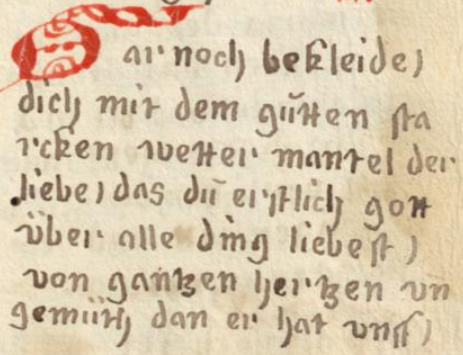 Darnoch bekleide)
dich mit dem gůtten sta
rcken wetter mantel der
liebe) das dů erstlich gott
über alle ding liebest)
von gantzen hertzen vn̄
gemüth dan er hat vnß)